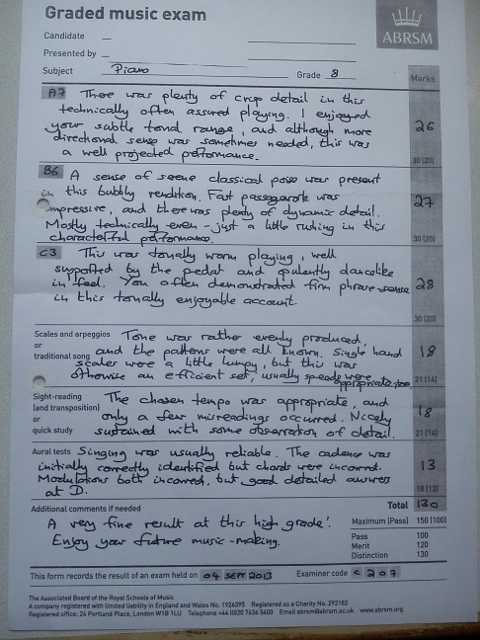 Graded music exam
ABRSM
Candidate
Presented by
Subject Piano Grade 8
Marks
A7 There was plenty of crisp detail in this
technically often assured playing. I enjoyed
your subtle tonal range, and although more
directional sense was sometimes needed, this was
a well projected performance.
26
30 (20)
B6 A sense of serene classical poise was present
in this bubbly rendition. Fast passagework was
impressive, and there was plenty of dynamic detail.
Mostly technically even - just a little rushing in this
characterful performance.
27
30 (20)
C3 This was tonally warm playing, well
supported by the pedal and opulently dancelike
in feel. You often demonstrated firm phrase-sense
in this tonally enjoyable account.
28
30 (20)
Scales and arpeggios
or
traditional song
Tone was rather evenly produced,
and the patterns were all known. Single hand
scales were a little lumpy, but this was
otherwise an efficient set, usually speeds were
appropriate too.
18
21 (14)
Sight-reading
(and transposition)
or
quick study
The chosen tempo was appropriate, and
only a few misreadings occurred. Nicely
sustained with some observation of detail.
18
21 (14)
Aural tests Singing was usually reliable. The cadence was
initially correctly identified but chords were incorrect.
Modulations both incorrect, but good detailed answers
at D.
13
18 (12)
Total 130
Additional comments if needed
A very fine result at this high grade!
Enjoy your future music-making.
Maximum (Pass) 150 (100)
Pass 100
Merit 120
Distinction 130
This form records the result of an exam held on 04 SEPT 2013 Examiner code C 207
The Associated Board of the Royal Schools of Music
A company registered with limited liability in England and Wales No. 1926395 Registered as a Charity No. 292182
Registered office: 24 Portland Place, London W1B 1LU Telephone +44 (0)20 7636 5400 Email abrsm@abrsm.ac.uk www.abrsm.org